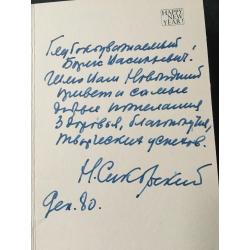 HAPPY
NEW
YEAR!
Глубокоуважаемый
Борис Васильевич!
Шлю Вам Новогодний
привет и самые
добрые пожелания
Здоровья, благополучия,
творческих успехов.
Н. Сикорский
Дек. 80.